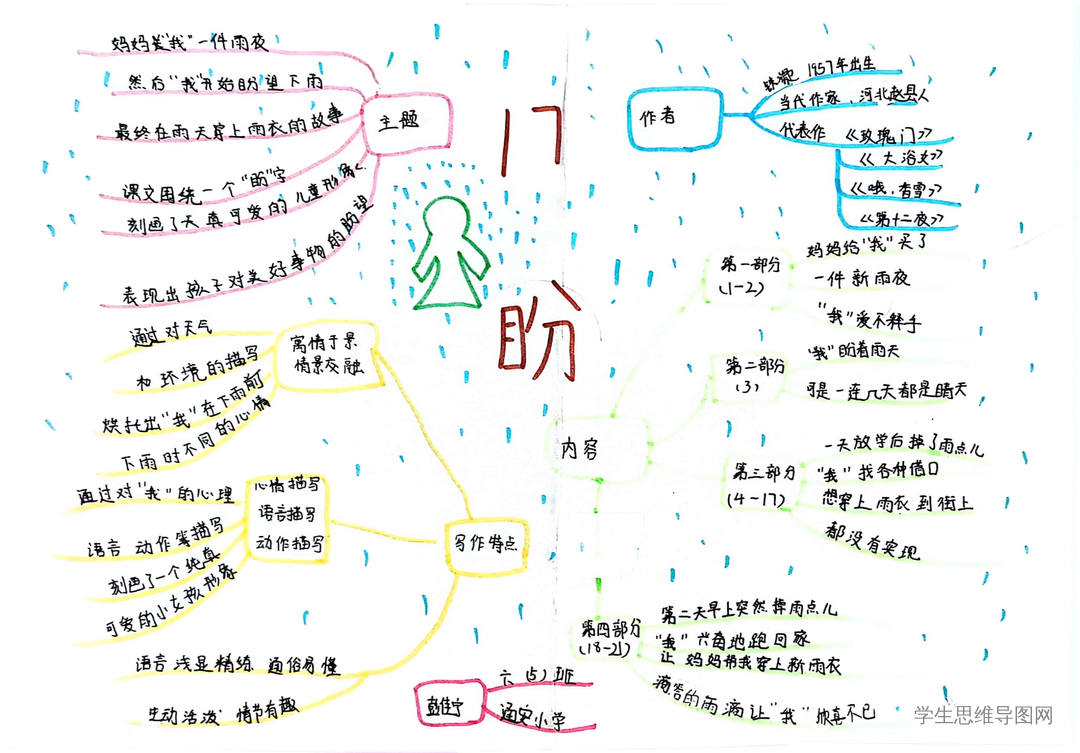 盼
作者
铁凝 1957年出生
当代作家、河北赵县人
代表作 《玫瑰门》
《大浴女》
《哦,香雪》
《第十二夜》
主题
妈妈买"我"一件雨夜
然后"我"开始盼望下雨
最终在雨天穿上雨衣的故事
课文围绕一个"盼"字
刻画了天真可爱的儿童形象
表现出孩子对美好事物的盼望
内容
第一部分
(1-2)
妈妈给"我"买了
一件新雨夜
"我"爱不释手
第二部分
(3)
"我"盼着雨天
可是一连几天都是晴天
第三部分
(4-17)
一天放学后掉了雨点儿
"我"找各种借口
想穿上雨衣到街上
都没有实现
第四部分
(18-21)
第二天早上突然掉雨点儿
"我" 地跑回家
让妈妈帮我穿上新雨衣
滴答的雨滴让"我" 不已
写作特点
寓情于景
情景交融
通过对天气
和环境的描写
烘托出"我"在下雨前
下雨时不同的心情
心情描写
语言描写
动作描写
通过对"我"的心理
语言 动作等描写
刻画了一个纯真
可爱的小女孩形象
语言浅显精练 通俗易懂
生动活泼 情节有趣
六(5)班
小学
学生思维导图网